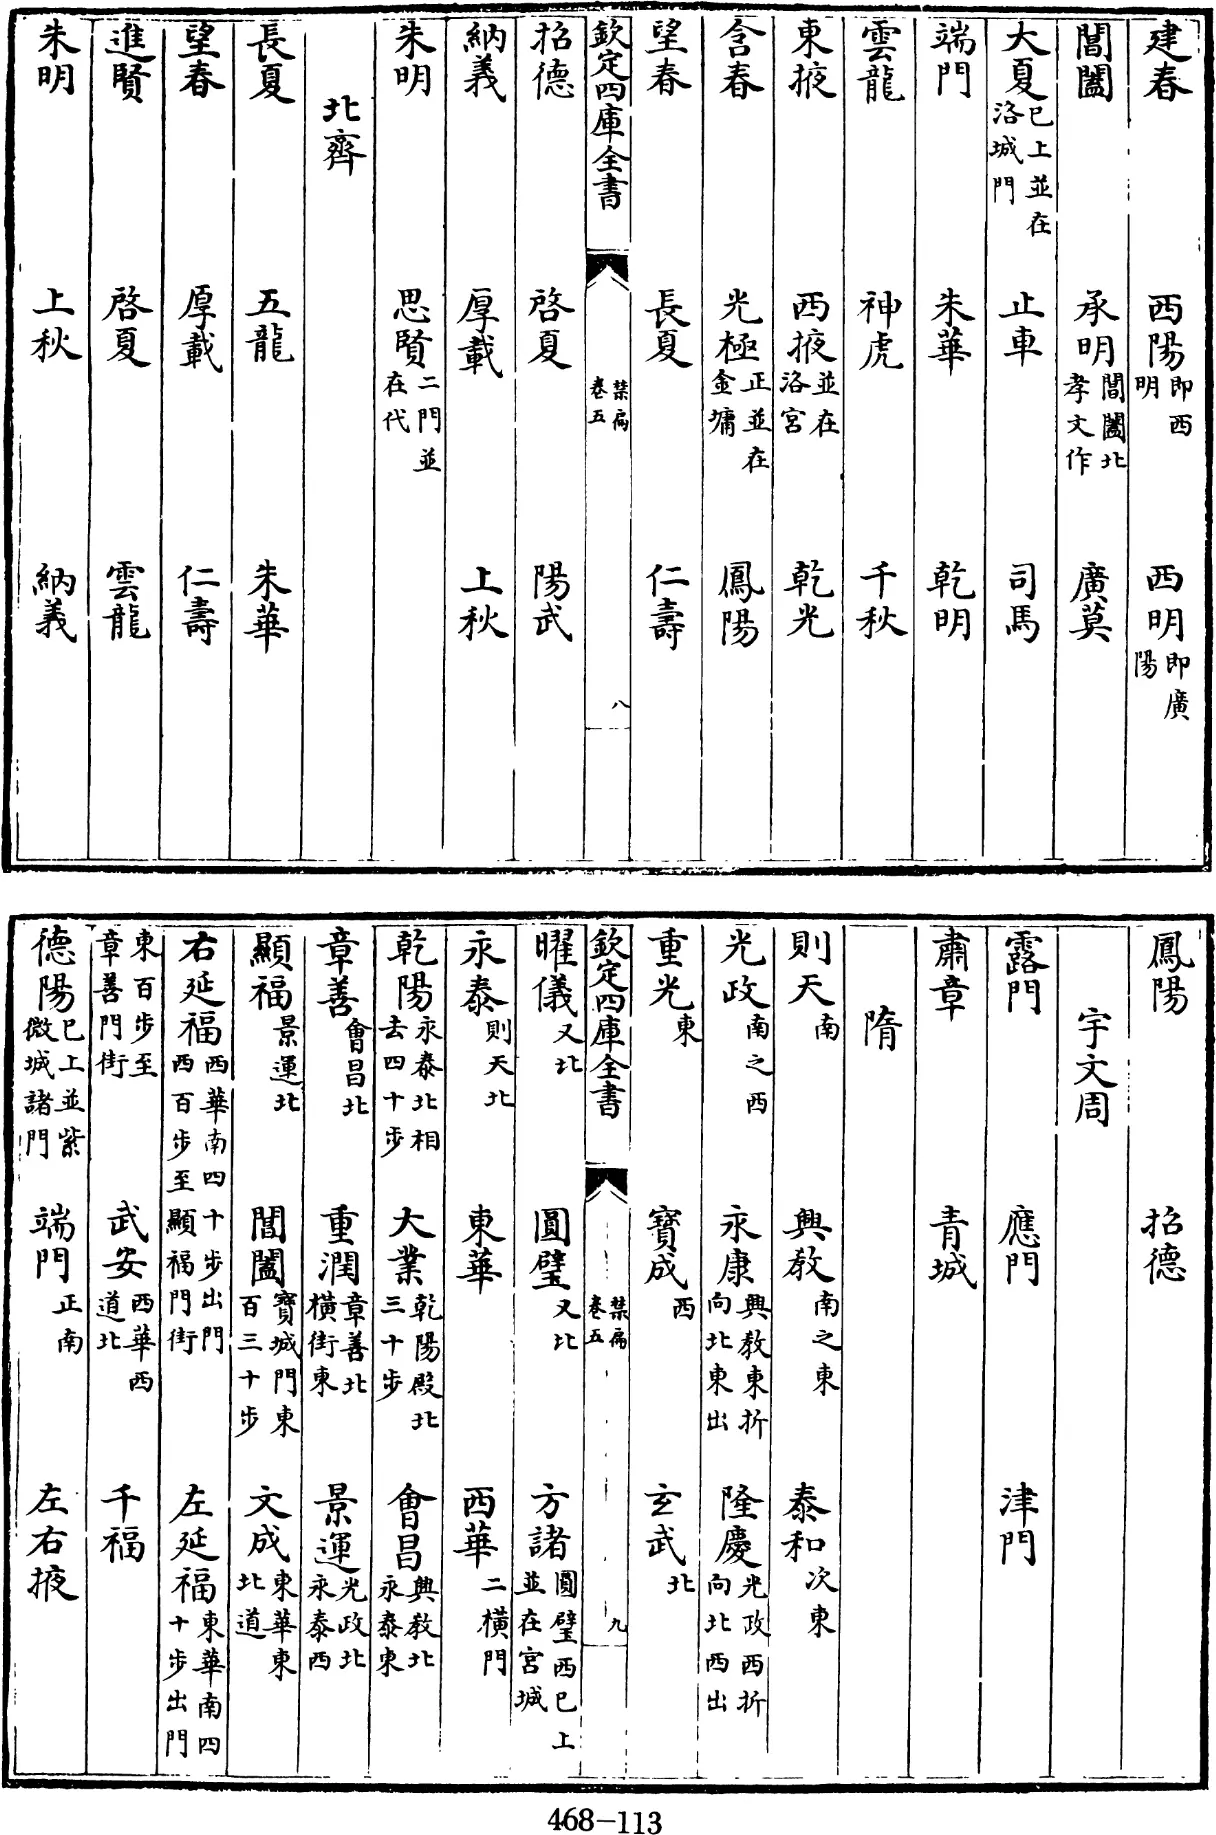 建春　西陽即西明　西明即廣陽
閶闔　承明閶闔北孝文作　廣莫
大夏已上並在洛城門　止車　司馬
端門　朱華　乾明
雲龍　神虎　千秋
東掖　西掖並在洛宮　乾光
含春　光極正並在金墉　鳳陽
望春　長夏　仁壽
欽定四庫全書　禁扁卷五　八
招德　啓夏　陽武
納義　厚載　上秋
朱明　思賢二門並在代
北齊
長夏　五龍　朱華
望春　厚載　仁壽
進賢　啓夏　雲龍
朱明　上秋　納義
鳳陽　招德
宇文周
露門　應門　津門
肅章　青城
隋
則天南　興教南之東　泰和次東
光政南之西　永康興教東折向北東出　隆慶光政西折向北西出
重光東　寶成西　玄武北
欽定四庫全書　禁扁卷五　九
曜儀又北　圓璧又北　方諸圓璧西已上並在宮城
永泰則天北　東華　西華二橫門
乾陽永泰北相去四十步　大業乾陽殿北三十步　會昌興教北永泰東
章善會昌北　重潤章善北橫街東　景運光政北永泰西
顯福景運北　閶闔寶城門東百三十步　文成東華東北道
右延福西華南四十步出門西百步至顯福門街　左延福東華南四十步出門
東百步至章善門街　武安西華西道北　千福
德陽已上並紫微城諸門　端門正南　左右掖
468-113